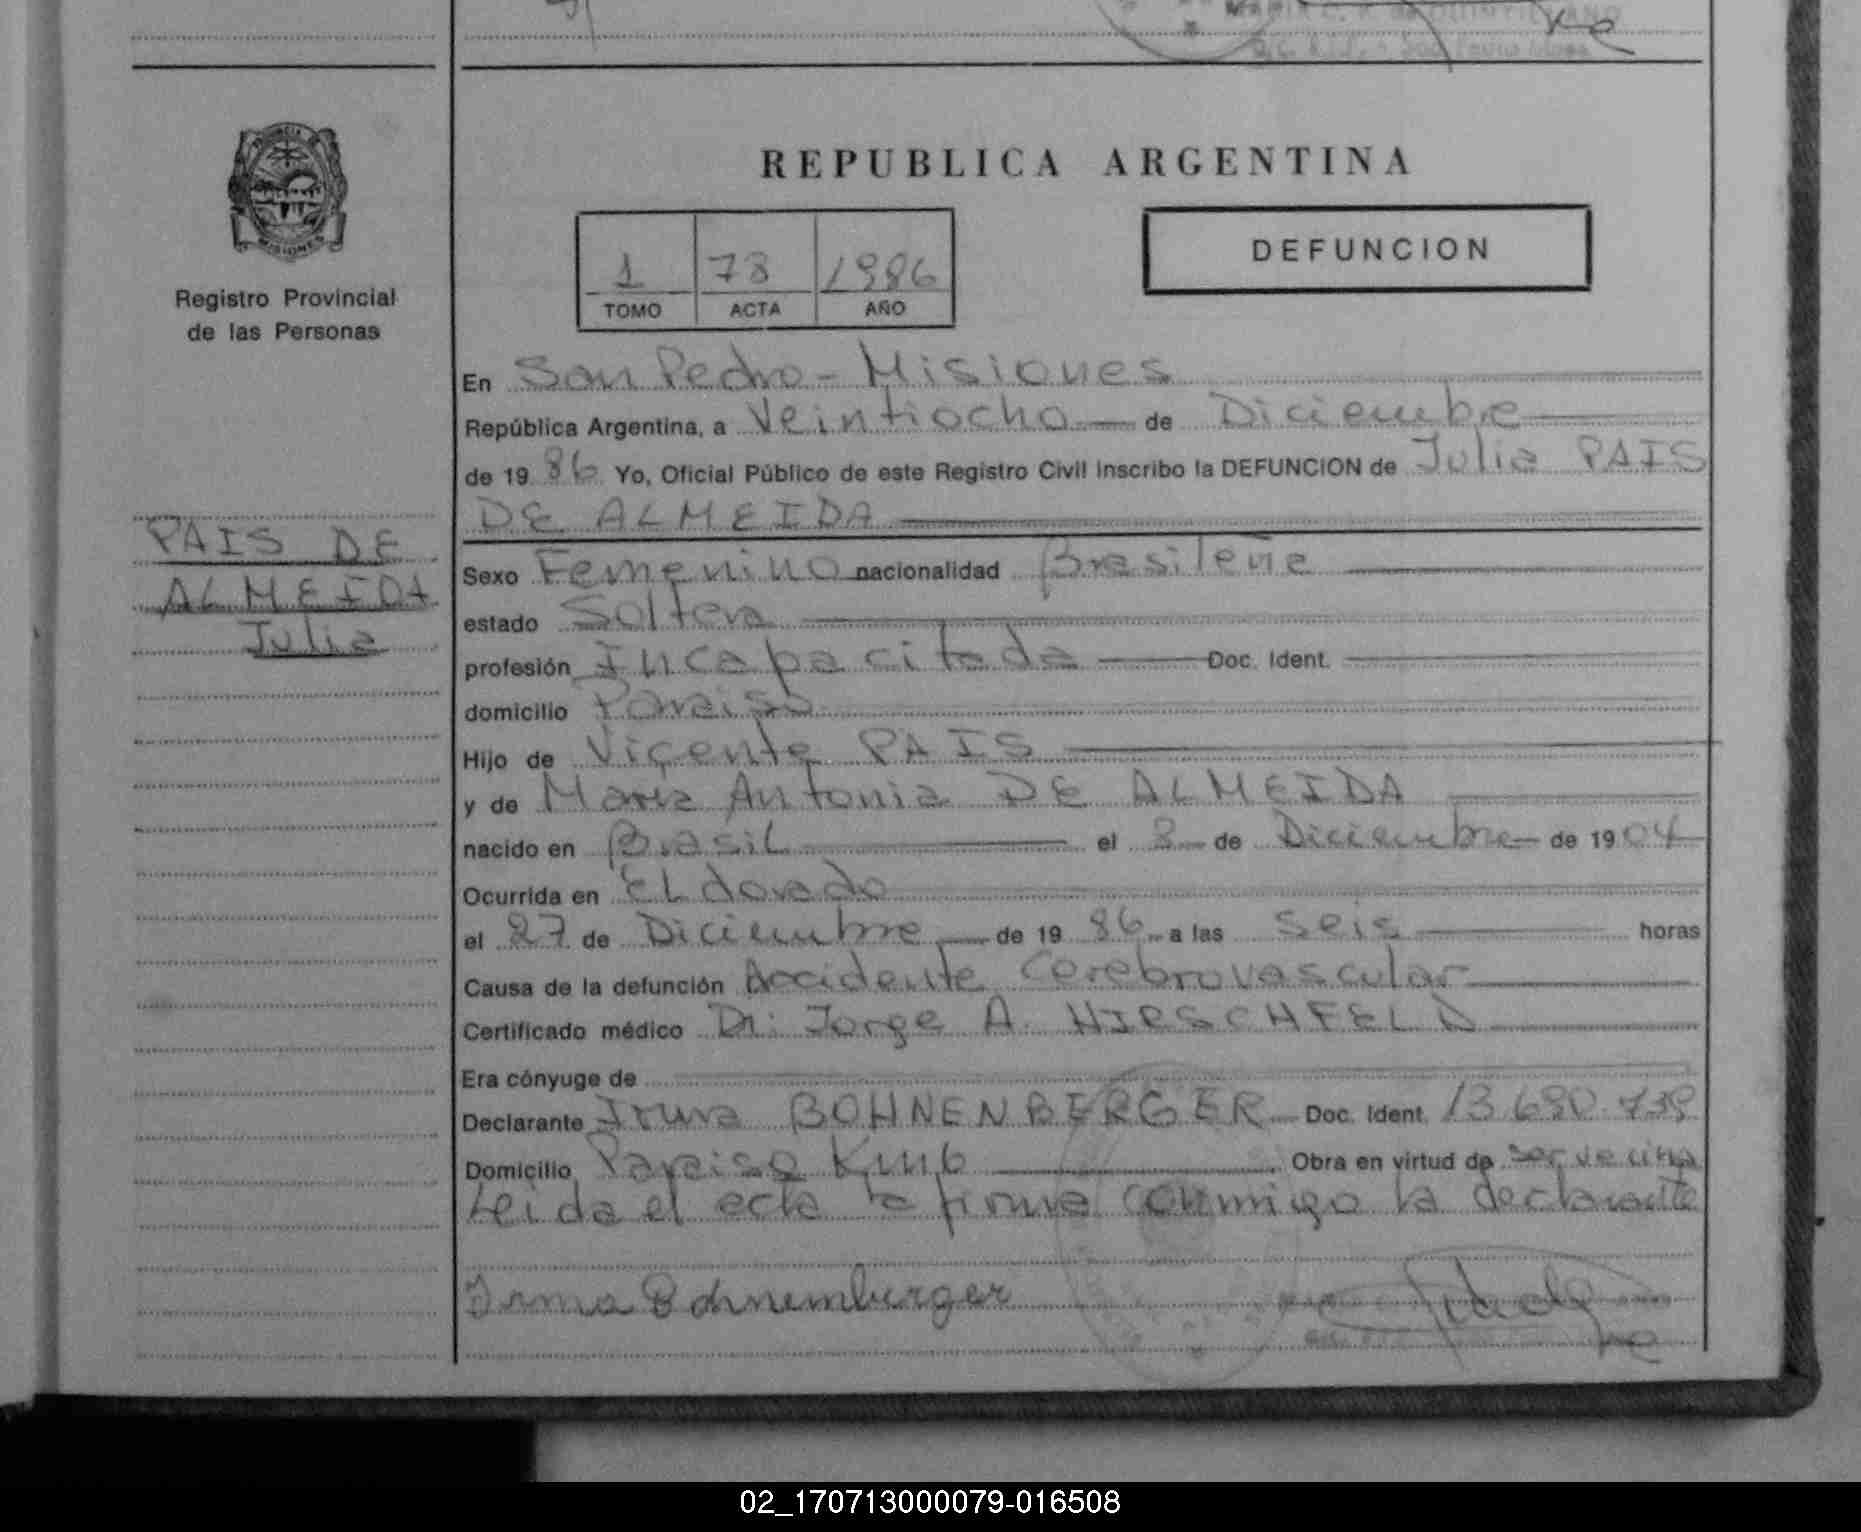 REPUBLICA ARGENTINA
PROVINCIA
MISIONES
Registro Provincial
de las Personas
1 78 1986
TOMO ACTA AÑO
DEFUNCION
En San Pedro - Misiones
República Argentina, a Veintiocho — de Diciembre
de 19 86 Yo, Oficial Público de este Registro Civil inscribo la DEFUNCION de Julia PAIS
DE ALMEIDA
PAIS DE
ALMEIDA
Julia
Sexo Femenino nacionalidad Brasileña
estado Soltera
profesión Incapacitada Doc. Ident.
domicilio Paraiso
Hijo de Vicente PAIS
y de Maria Antonia DE ALMEIDA
nacido en Brasil el 8 de Diciembre de 19 04
Ocurrida en Eldorado
el 27 de Diciembre de 19 86 a las seis horas
Causa de la defunción Accidente Cerebrovascular
Certificado médico Dr. Jorge A. HIRSCHFELD
Era cónyuge de
Declarante Irma BOHNENBERGER Doc. Ident. 13.680.739
Domicilio Paraiso Km 6 Obra en virtud de ser vecina
Leida el acta la firma conmigo la declarante
Irma Bohnemberger
02_170713000079-016508